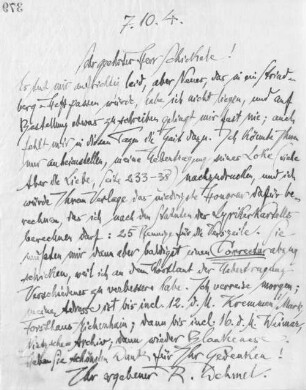 379
7.10.4.
Sehr geehrter Herr Schickele!
Es thut mir aufrichtig leid, aber Neues, das in ein Strind-
berg-Heft passen würde, habe ich nicht liegen, und auf
Bestellung etwas zu schreiben gelingt mir fast nie; auch
fehlt mir in diesen Tagen die Zeit dazu. Ich könnte Ihnen
nur anheimstellen, meine Uebertragung seiner Loke (siehe
Aber die Liebe, Seite 233-38) nachzudrucken, und ich
würde Ihrem Verlage das niedrigste Honorar dafür be-
rechnen, das ich nach den Satzungen des Lyriker-Kartells
berechnen darf: 25 Pfennige für die Verszeile. Sie
müßten mir dann aber baldigst einen Correcturabzug
schicken, weil ich an dem Wortlaut der Uebertragung
Verschiedenes zu verbessern habe. Ich verreise morgen;
meine Adresse ist bis incl. 12. d. M. Kremmen (Mark)
Forsthaus; dann bis incl. 16. d. M. Weimar,
Nietzsche-Archiv, dann wieder Blankenese.
Haben Sie schönsten Dank für Ihr Gedenken!
Ihr ergebener R. Dehmel.